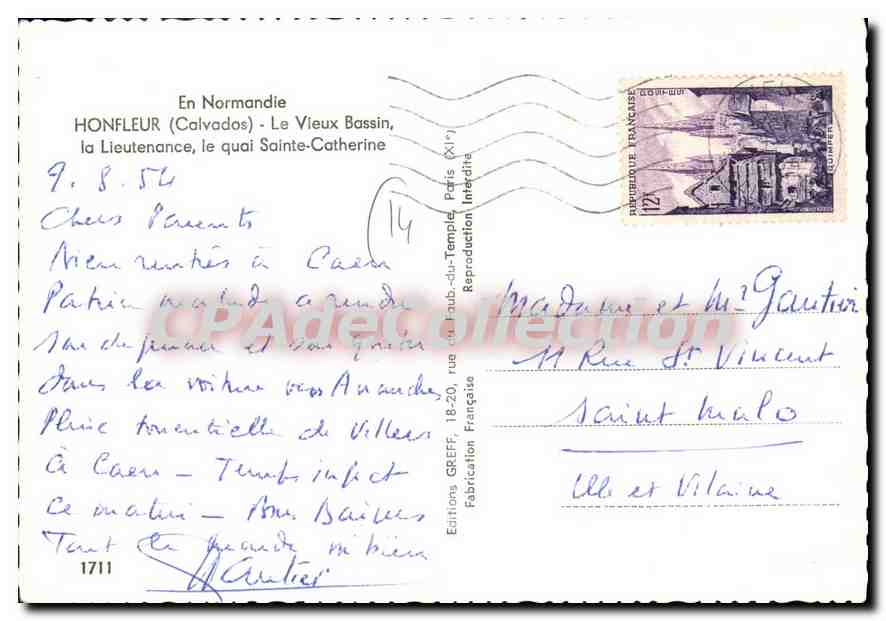 En Normandie
HONFLEUR (Calvados) - Le Vieux Bassin,
la Lieutenance, le quai Sainte-Catherine
9.8.54
14
Chers Parents
Bien rentrés à Caen
Patrice malade a rendu
son déjeuner et son goûter
dans la voiture vers Avranches
Pluie torrentielle de Villers
à Caen - Temps infect
ce matin - Bons Baisers
Tout le monde va bien
Gautier
1711
Editions GREFF, 18-20, rue du Faub.-du-Temple, Paris (XIe)
Fabrication Française
Reproduction Interdite
RÉPUBLIQUE FRANÇAISE
POSTES
12F
QUIMPER
Madame et Mr Gautier
11 Rue St Vincent
Saint Malo
Ille et Vilaine
CPAdeCollection.com